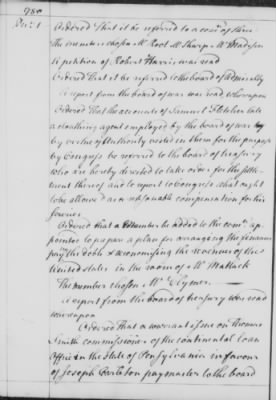 980
Dec. 1
Ordered That it be referred to a come. of three
the members chosen Mr Root Mr Sharp Mr Madison
A petition of Robert Harris was read
Ordered That it be referred to the board of Admiralty
A report from the board of war was read whereupon
Ordered That the accounts of Samuel Fletcher late
a cloathing agent employed by the board of war
by virtue of Authority vested in them for the purpose
by Congress be referred to the board of treasury
who are hereby directed to take order for the settle-
ment thereof and to report to Congress what ought
to be allowed as a reasonable compensation for his
services
Ordered that a Member be added to the come. ap-
pointed to prepare a plan for arranging the finances
paying the debts & economising the revenues of the
United states in the room of Mr Matlack
The member chosen Mr Clymer
A report from the board of treasury was read
whereupon
Ordered That a warrant issue on Thomas
Smith commissioner of the continental loan
Office in the state of Pensylvania in favour
of Joseph Carleton paymaster to the board